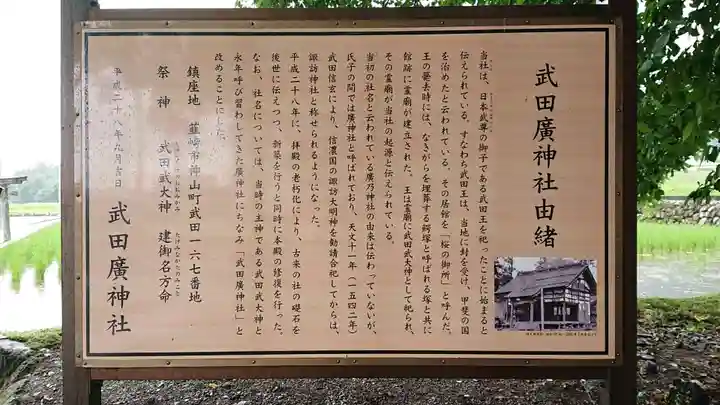 武田廣神社由緒
当社は、日本武尊の御子である武田王を祀ったことに始まると
伝えられている。すなわち武田王は、当地に封を受け、甲斐の国
を治めたと云われている。その居館を「桜の御所」と呼んだ。
王の薨去時には、なきがらを埋葬する鍔塚と呼ばれる塚と共に
館跡に霊廟が建立された。王は霊廟に武田武大神として祀られ、
その霊廟が当社の起源と伝えられている。
当初の社名と云われている廣乃神社の由来は伝わっていないが、
氏子の間では廣神社と呼ばれており、天文十一年(一五四二年)
武田信玄により、信濃国の諏訪大明神を勧請合祀してからは、
諏訪神社と称せられるようになった。
平成二十八年に、拝殿の老朽化により、古来の社の礎石を
後世に伝えつつ、新築を行うと同時に本殿の修復を行った。
なお、社名については、当時の主神である武田武大神と
永年呼び習わしてきた廣神社にちなみ「武田廣神社」と
改めることにした。
鎮座地 韮崎市神山町武田一六七番地
祭神 武田武大神 建御名方命
たけみなかたのみこと
平成二十八年九月吉日
武田廣神社